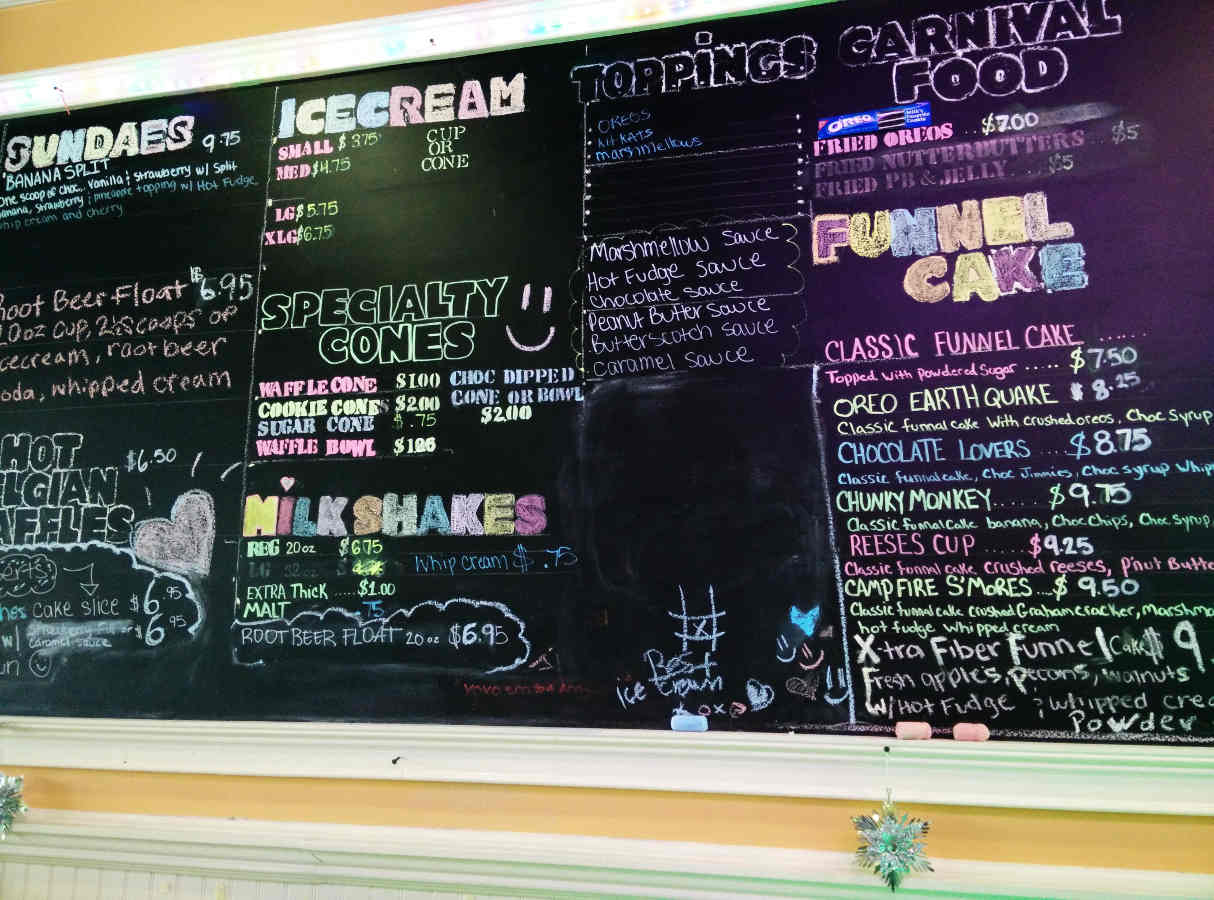 SUNDAES 9.75
BANANA SPLIT
One scoop of choc, Vanilla & strawberry w/ Split
banana, strawberry & pineapple topping w/ Hot Fudge,
whip cream and cherry
Root Beer Float $6.95
10oz Cup, 2½ scoops of
icecream, rootbeer
soda, whipped cream
HOT
ELGIAN
AFFLES
$6.50
cake slice $6.95
w/ caramel sauce $6.95
ICECREAM
SMALL $ 3.75
MED $4.75
LG $5.75
XLG $6.75
CUP
OR
CONE
SPECIALTY
CONES
WAFFLE CONE $1.00
COOKIE CONES $2.00
SUGAR CONE $ .75
WAFFLE BOWL $1.26
CHOC DIPPED
CONE OR BOWL
$2.00
MILKSHAKES
REG 20oz $6.75
LG 32oz
whip cream $ .75
EXTRA THICK ..... $1.00
MALT .75
ROOT BEER FLOAT 20oz $6.95
TOPPINGS
OREOS
kit kats
marshmellows
Marshmellow Sauce
Hot Fudge Sauce
Chocolate sauce
Peanut Butter Sauce
Butterscotch Sauce
Caramel Sauce
X
Best
ice cream
CARNIVAL
FOOD
OREO
FRIED OREOS ... $7.00
FRIED NUTTERBUTTERS ... $5
FRIED PB & JELLY ... $5
FUNNEL
CAKE
CLASSIC FUNNEL CAKE ......
Topped with Powdered Sugar ..... $7.50
OREO EARTHQUAKE $8.25
Classic funnal cake with crushed oreos, Choc Syrup
CHOCOLATE LOVERS ... $8.75
Classic funnalcake, Choc Jimmies, Choc syrup whip
CHUNKY MONKEY...... $9.75
Classic funnalCake banana, ChocChips, Choc Syrup,
REESES CUP ...... $9.25
Classic funnal cake, crushed reeses, P'nut Butte
CAMPFIRE S'MORES...$ 9.50
Classic funnal cake crushed Grahamcracker, marshma
hot fudge whipped cream
X-tra Fiber Funnel Cake $9.
Fresh apples, pecans, walnuts
w/Hot Fudge & whipped crea
Powder